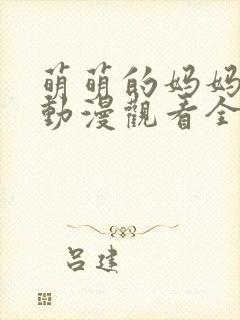 萌萌的妈妈
動漫觀看全
吕建